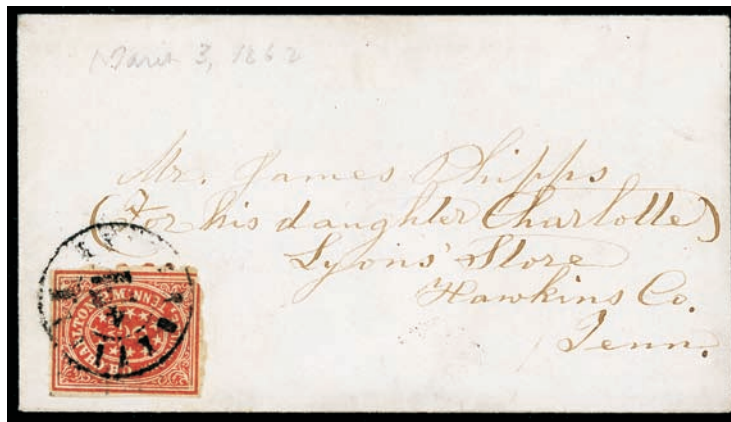 3, 1862
Mr. James Phipps
(For his daughter Charlotte)
Lyons' Store
Hawkins Co.
Tenn.